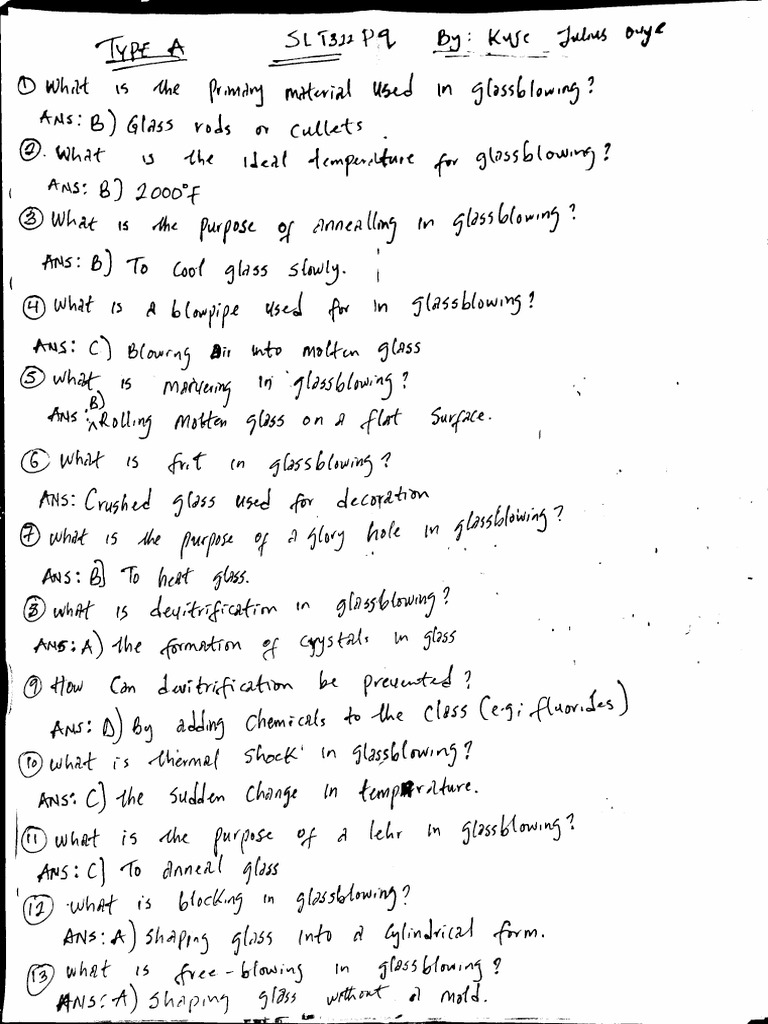 TYPE A SLT322 PQ By: Kuje Julius Ouye
① What is the primary material used in glassblowing?
ANS: B) Glass rods or cullets.
②. What is the ideal temperature for glassblowing?
ANS: B) 2000°F
③ What is the purpose of annealling in glassblowing?
ANS: B) To cool glass slowly.
④ What is a blowpipe used for in glassblowing?
ANS: C) Blowing air into molten glass
⑤ what is marvering in glassblowing?
ANS: B) Rolling molten glass on a flat surface.
⑥ What is frit in glassblowing?
ANS: Crushed glass used for decoration
⑦ what is the purpose of a glory hole in glassblowing?
ANS: B) To heat glass.
⑧ what is devitrification in glassblowing?
ANS: A) the formation of crystals in glass
⑨ How can devitrification be prevented?
ANS: D) By adding chemicals to the class (e.g; fluorides)
⑩ what is thermal shock in glassblowing?
ANS: C) the sudden change in temperature.
⑪ what is the purpose of a lehr in glassblowing?
ANS: C) To anneal glass
⑫ what is blocking in glassblowing?
ANS: A) shaping glass into a cylindrical form.
⑬ what is free-blowing in glassblowing?
ANS: A) shaping glass without a mold.